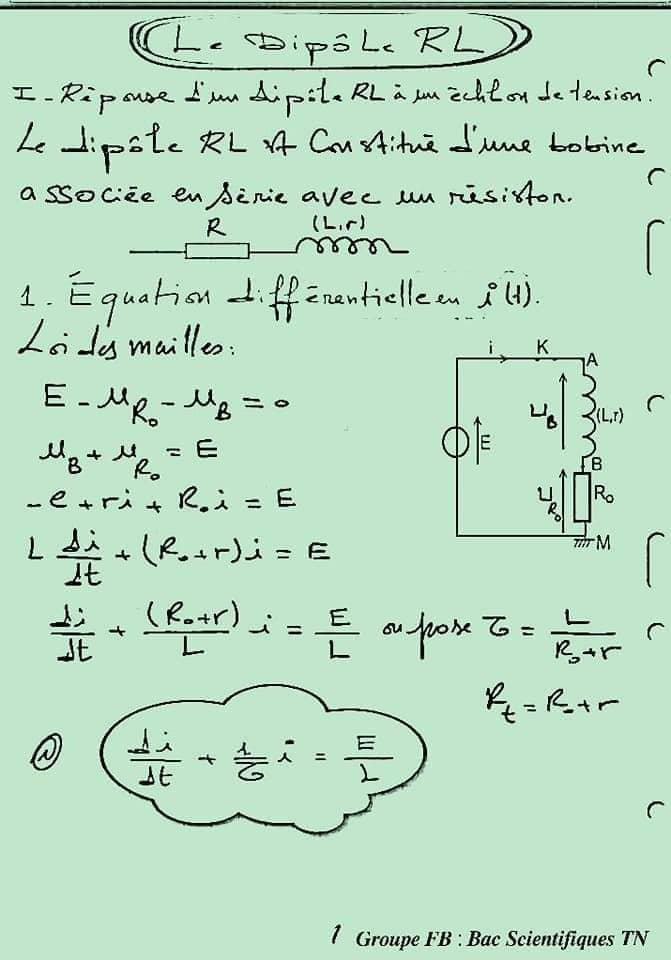 Le Dipôle RL
I - Réponse d'un dipôle RL à un échelon de tension.
Le dipôle RL est Constitué d'une bobine
associée en série avec un résistor.
R (L,r)
1. Équation différentielle en i(t).
Loi des mailles:
E - u_R₀ - u_B = 0
u_B + u_R₀ = E
-e + ri + R₀i = E
L di/dt + (R₀+r)i = E
i K A
E u_B (L,r)
B
u_R₀ R₀
M
di/dt + (R₀+r)/L i = E/L on pose τ = L/(R₀+r)
R_t = R₀+r
di/dt + 1/τ i = E/L
1 Groupe FB : Bac Scientifiques TN